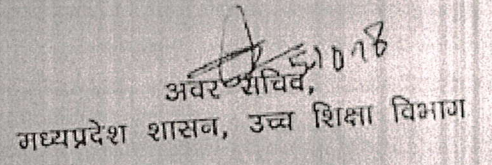 अवर सचिव,
मध्यप्रदेश शासन, उच्च शिक्षा विभाग